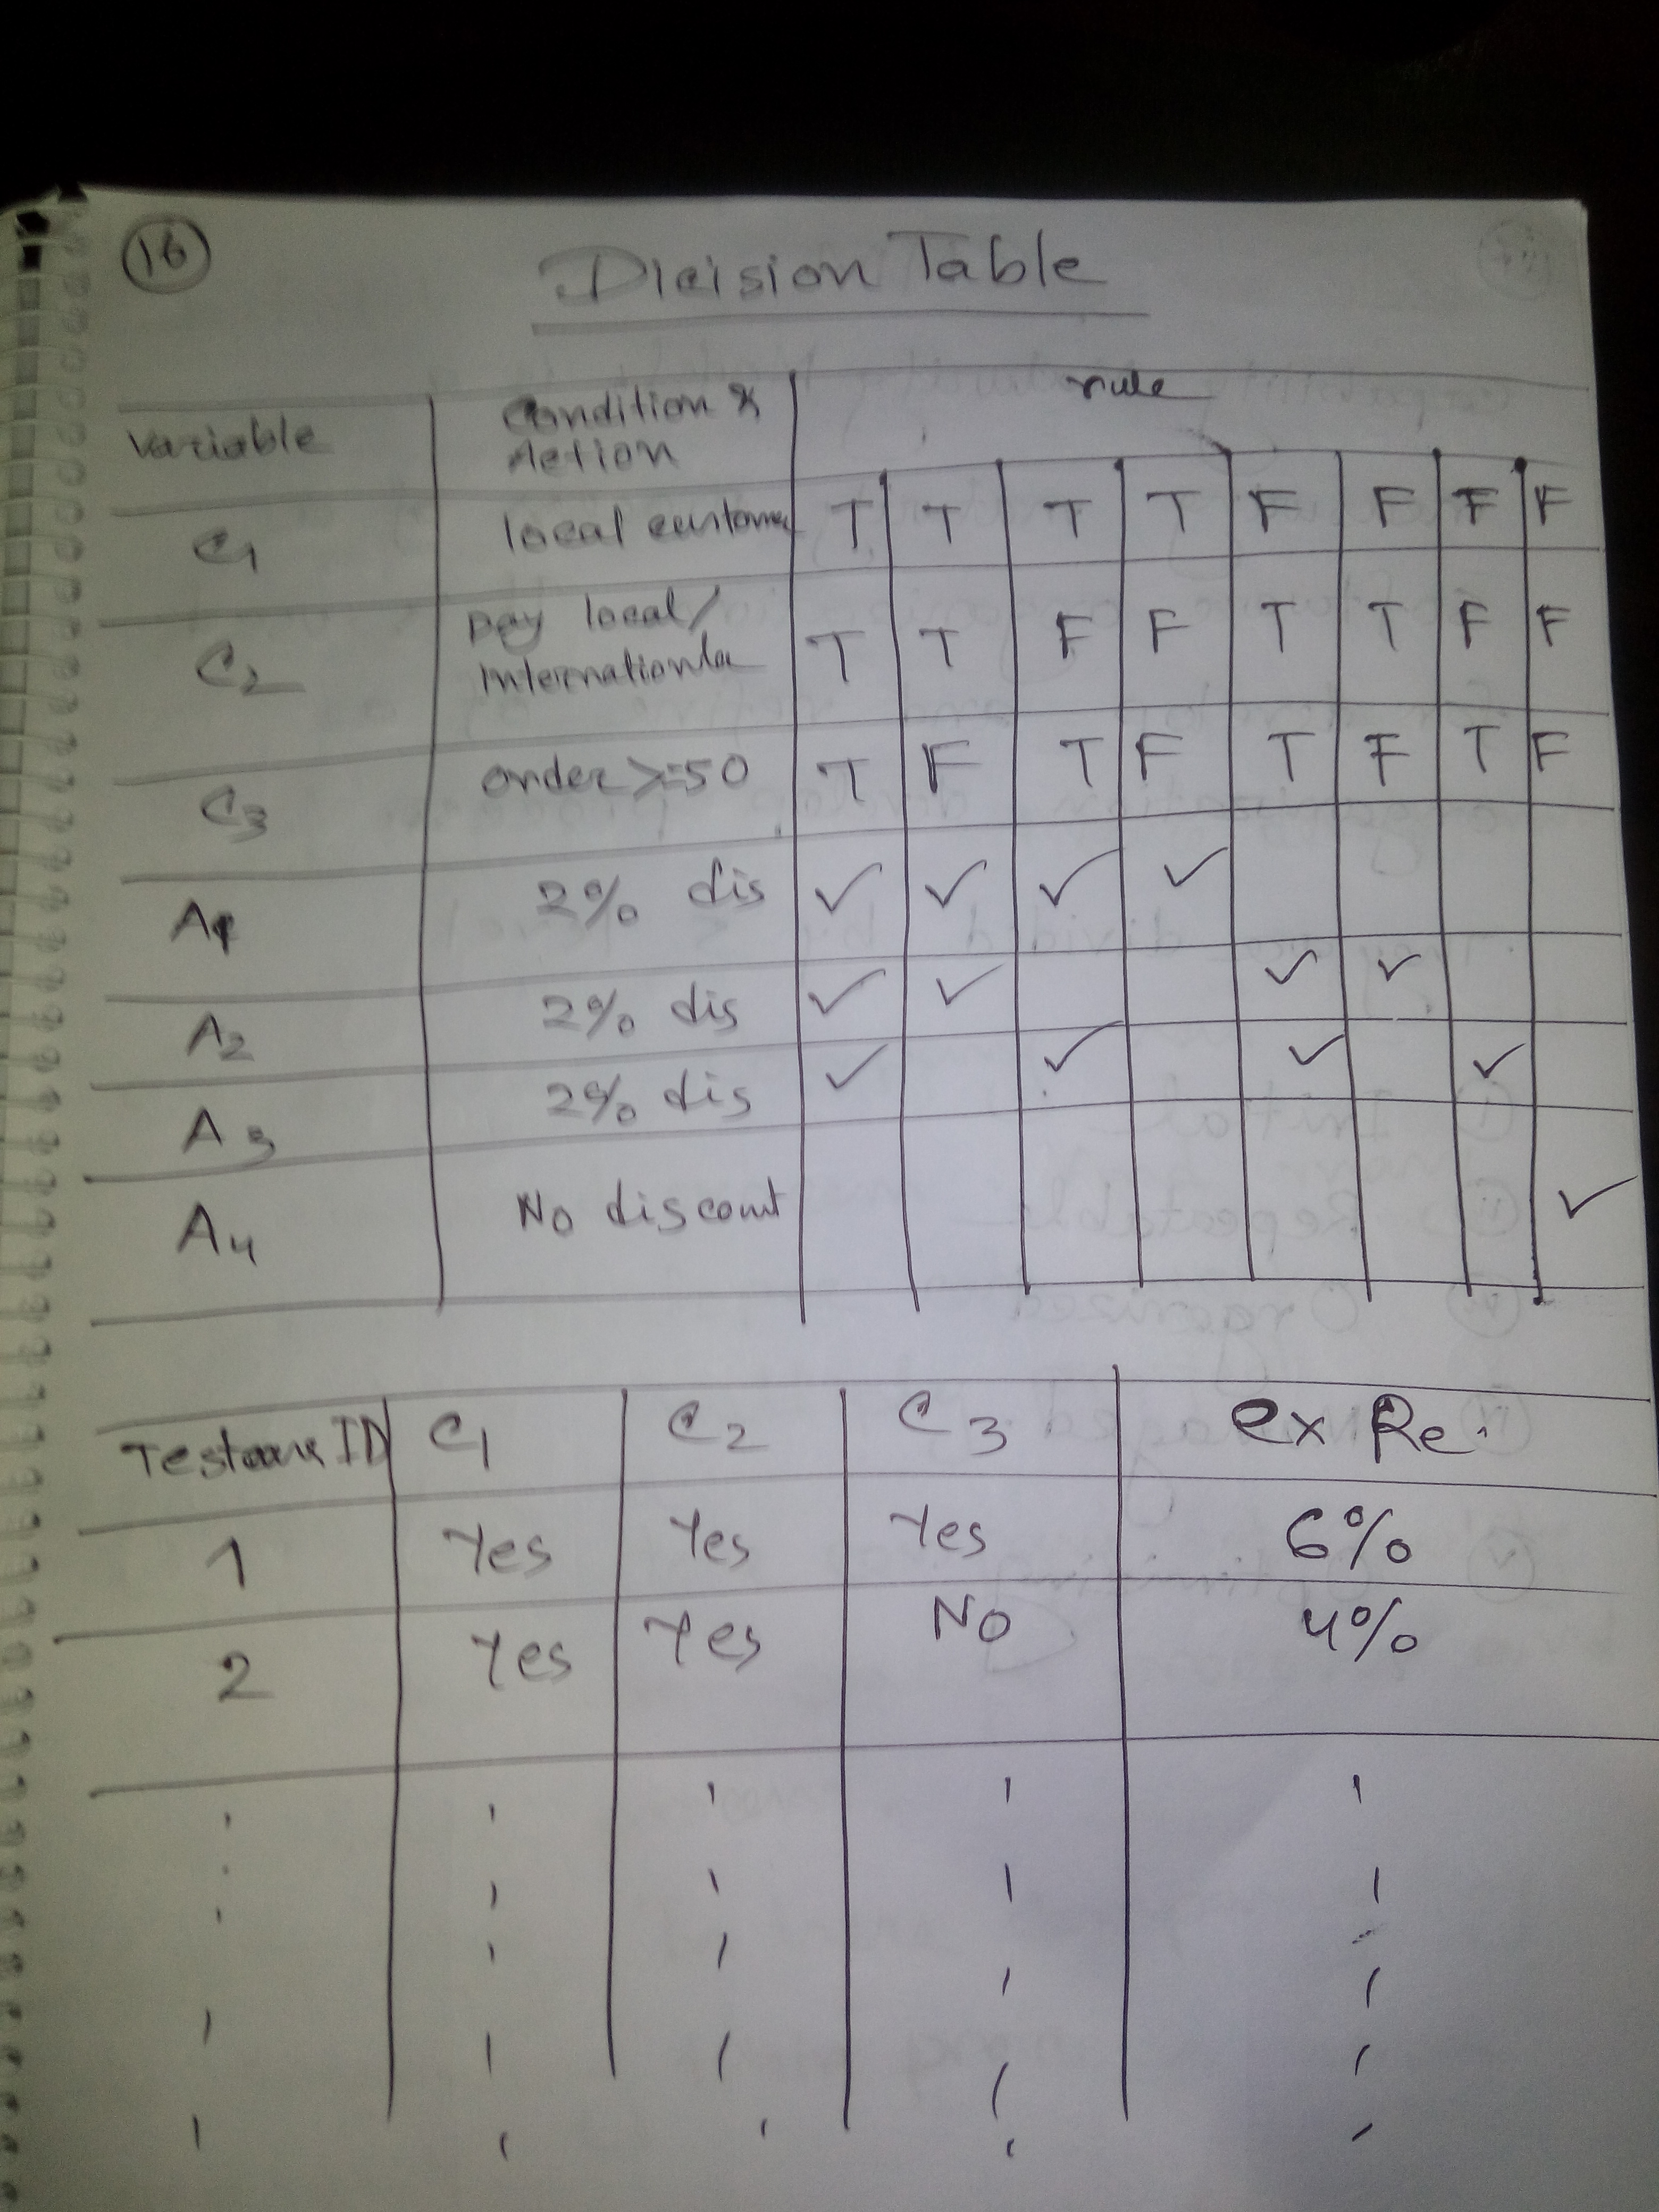 16
Dicision Table
Variable Condition & Action rule
C1 local customer T T T T F F F F
C2 pay local/ Internationla T T F F T T F F
C3 order >=50 T F T F T F T F
A1 2% dis ✓ ✓ ✓ ✓
A2 2% dis ✓ ✓ ✓ ✓
A3 2% dis ✓ ✓ ✓ ✓
A4 No discount ✓
Testcase ID C1 C2 C3 ex Re.
1 Yes Yes Yes 6%
2 Yes Yes No 4%